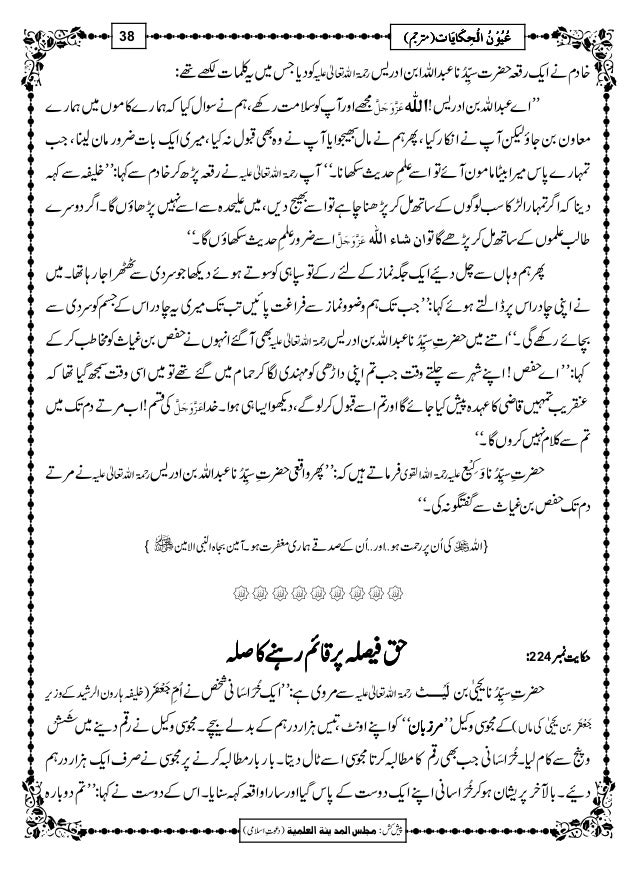 عُیُوْنُ الْحِکَایَات (مترجم)
38
خادم نے ایک رقعہ حضرت سیِّدُنا عبداللہ ابن ادریس رحمۃ اللہ تعالیٰ علیہ کو دیا جس میں یہ کلمات لکھے تھے:
’’اے عبداللہ بن ادریس! اللہ عَزَّوَجَلَّ مجھے اور آپ کو سلامت رکھے، ہم نے سوال کیا کہ ہمارے کاموں میں ہمارے
معاون بن جاؤ لیکن آپ نے انکار کیا، پھر ہم نے مال بھجوایا آپ نے وہ بھی قبول نہ کیا، میری ایک بات ضرور مان لینا، جب
تمہارے پاس میرا بیٹا مامون آئے تو اسے علمِ حدیث سکھانا۔‘‘ آپ رحمۃ اللہ تعالیٰ علیہ نے رقعہ پڑھ کر خادم سے کہا: ’’خلیفہ سے کہہ
دینا کہ اگر تمہارا لڑکا سب لوگوں کے ساتھ مل کر پڑھنا چاہے تو اسے بھیج دیں، میں علیحدہ سے اسے نہیں پڑھاؤں گا۔ اگر دوسرے
طالب علموں کے ساتھ مل کر پڑھے گا تو ان شاء اللہ عَزَّوَجَلَّ اسے ضرور علمِ حدیث سکھاؤں گا۔‘‘
پھر ہم وہاں سے چل دیئے ایک جگہ نماز کے لئے رکے تو سپاہی کو سوتے ہوئے دیکھا جو سردی سے ٹھٹھرا جا رہا تھا۔ میں
نے اپنی چادر اس پر ڈالتے ہوئے کہا: ’’جب تک ہم وضو و نماز سے فراغت پائیں تب تک میری یہ چادر اس کے جسم کو سردی سے
بچائے رکھے گی۔‘‘ اتنے میں حضرتِ سیِّدُنا عبداللہ بن ادریس رحمۃ اللہ تعالیٰ علیہ بھی آ گئے انہوں نے حفص بن غیاث کو مخاطب کر کے
کہا: ’’اے حفص! اپنے شہر سے چلتے وقت جب تم اپنی داڑھی کو مہندی لگا کر حمام میں گئے تھے تو میں اسی وقت سمجھ گیا تھا کہ
عنقریب تمہیں قاضی کا عہدہ پیش کیا جائے گا اور تم اسے قبول کر لو گے، دیکھو ایسا ہی ہوا۔ خدا عَزَّوَجَلَّ کی قسم! اب مرتے دم تک میں
تم سے کلام نہیں کروں گا۔‘‘
حضرتِ سیِّدُنا وَکِیْع علیہ رحمۃ اللہ القوی فرماتے ہیں کہ: ’’پھر واقعی حضرتِ سیِّدُنا عبداللہ بن ادریس رحمۃ اللہ تعالیٰ علیہ نے مرتے
دم تک حفص بن غیاث سے گفتگو نہ کی۔‘‘
{اللہ ﷻ کی اُن پر رحمت ہو.. اور.. اُن کے صدقے ہماری مغفرت ہو۔ آمین بجاہ النبی الامین ﷺ}
حکایت نمبر 224: حق فیصلہ پر قائم رہنے کا صلہ
حضرتِ سیِّدُنا یحییٰ بن لَیْث رحمۃ اللہ تعالیٰ علیہ سے مروی ہے: ’’ایک خُرَاسَانی شخص نے اُمِّ جَعْفَر (خلیفہ ہارون الرشید کے وزیر
جَعْفَر بن یحییٰ کی ماں) کے مجوسی وکیل ’’مرزبان‘‘ کو اپنے اونٹ، تیس ہزار درہم کے بدلے بیچے۔ مجوسی وکیل نے رقم دینے میں شَش
و پنج سے کام لیا۔ خُرَاسَانی جب بھی رقم کا مطالبہ کرتا مجوسی اسے ٹال دیتا۔ بار بار مطالبہ کرنے پر مجوسی نے صرف ایک ہزار درہم
دیئے۔ بالآخر پریشان ہو کر خُرَاسانی اپنے ایک دوست کے پاس گیا اور سارا واقعہ کہہ سنایا۔ اس کے دوست نے کہا: ’’تم دوبارہ
پیش کش: مجلس المدینۃ العلمیۃ (دعوتِ اسلامی)